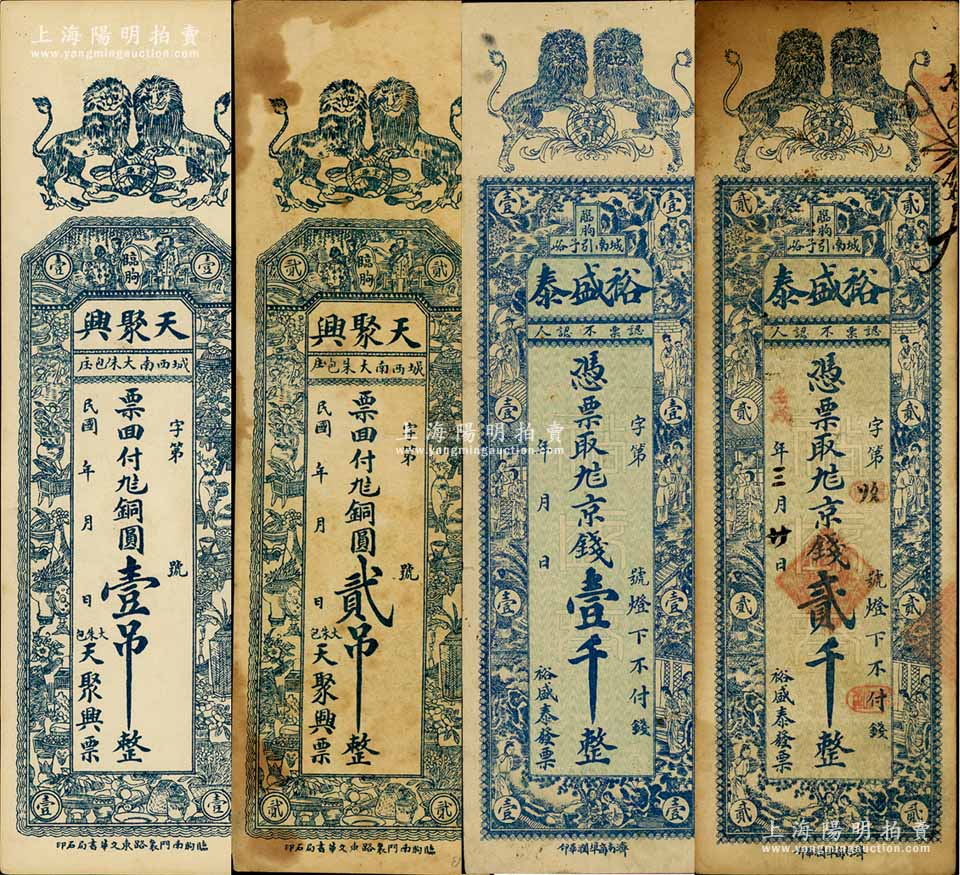 上海陽明拍賣
www.yangmingauction.com
壹
壹
臨朐
天聚興
城西南大朱包庄
字第 號
票回付凭銅圓壹吊整
民國 年 月 日
大朱包天聚興票
壹
壹
臨朐南門裏路東文華書局石印
貳
貳
臨朐
天聚興
城西南大朱包庄
字第 號
票回付凭銅圓貳吊整
民國 年 月 日
大朱包天聚興票
貳
貳
臨朐南門裏路東文華書局石印
上海陽明拍賣
www.yangmingauction.com
壹
壹
臨朐
城南引子峪
裕盛泰
認票不認人
字第 號燈下不付錢
憑票取凭京錢壹千整
年 月 日
裕盛泰發票
壹
壹
壹
壹
壹
壹
貳
貳
臨朐
城南引子峪
裕盛泰
認票不認人
字第 號燈下不付錢
憑票取凭京錢貳千整
年三月廿日
裕盛泰發票
貳
貳
貳
貳
貳
貳
上海陽明拍賣
www.yangmingauction.com